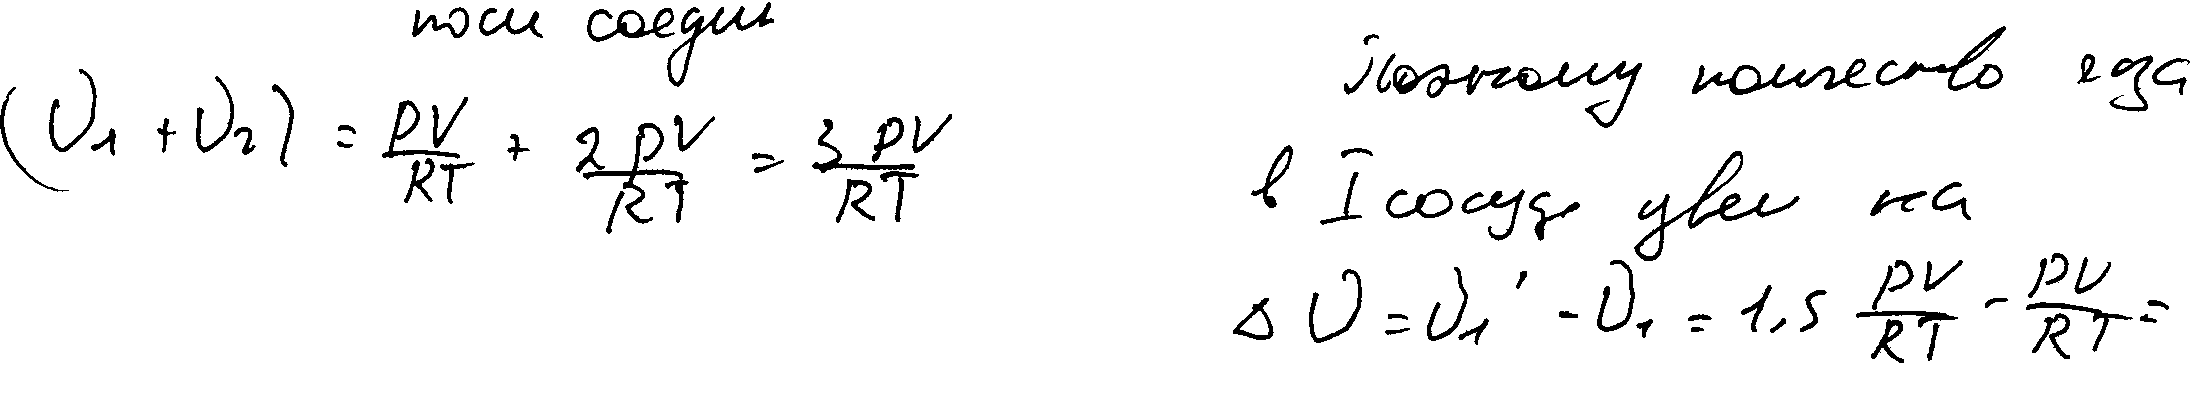 посл соедин
(υ₁ + υ₂) = PV/RT + 2PV/RT = 3PV/RT
Поэтому количество газа
в I сосуде увел на
Δυ = υ₁' - υ₁ = 1,5 PV/RT - PV/RT =